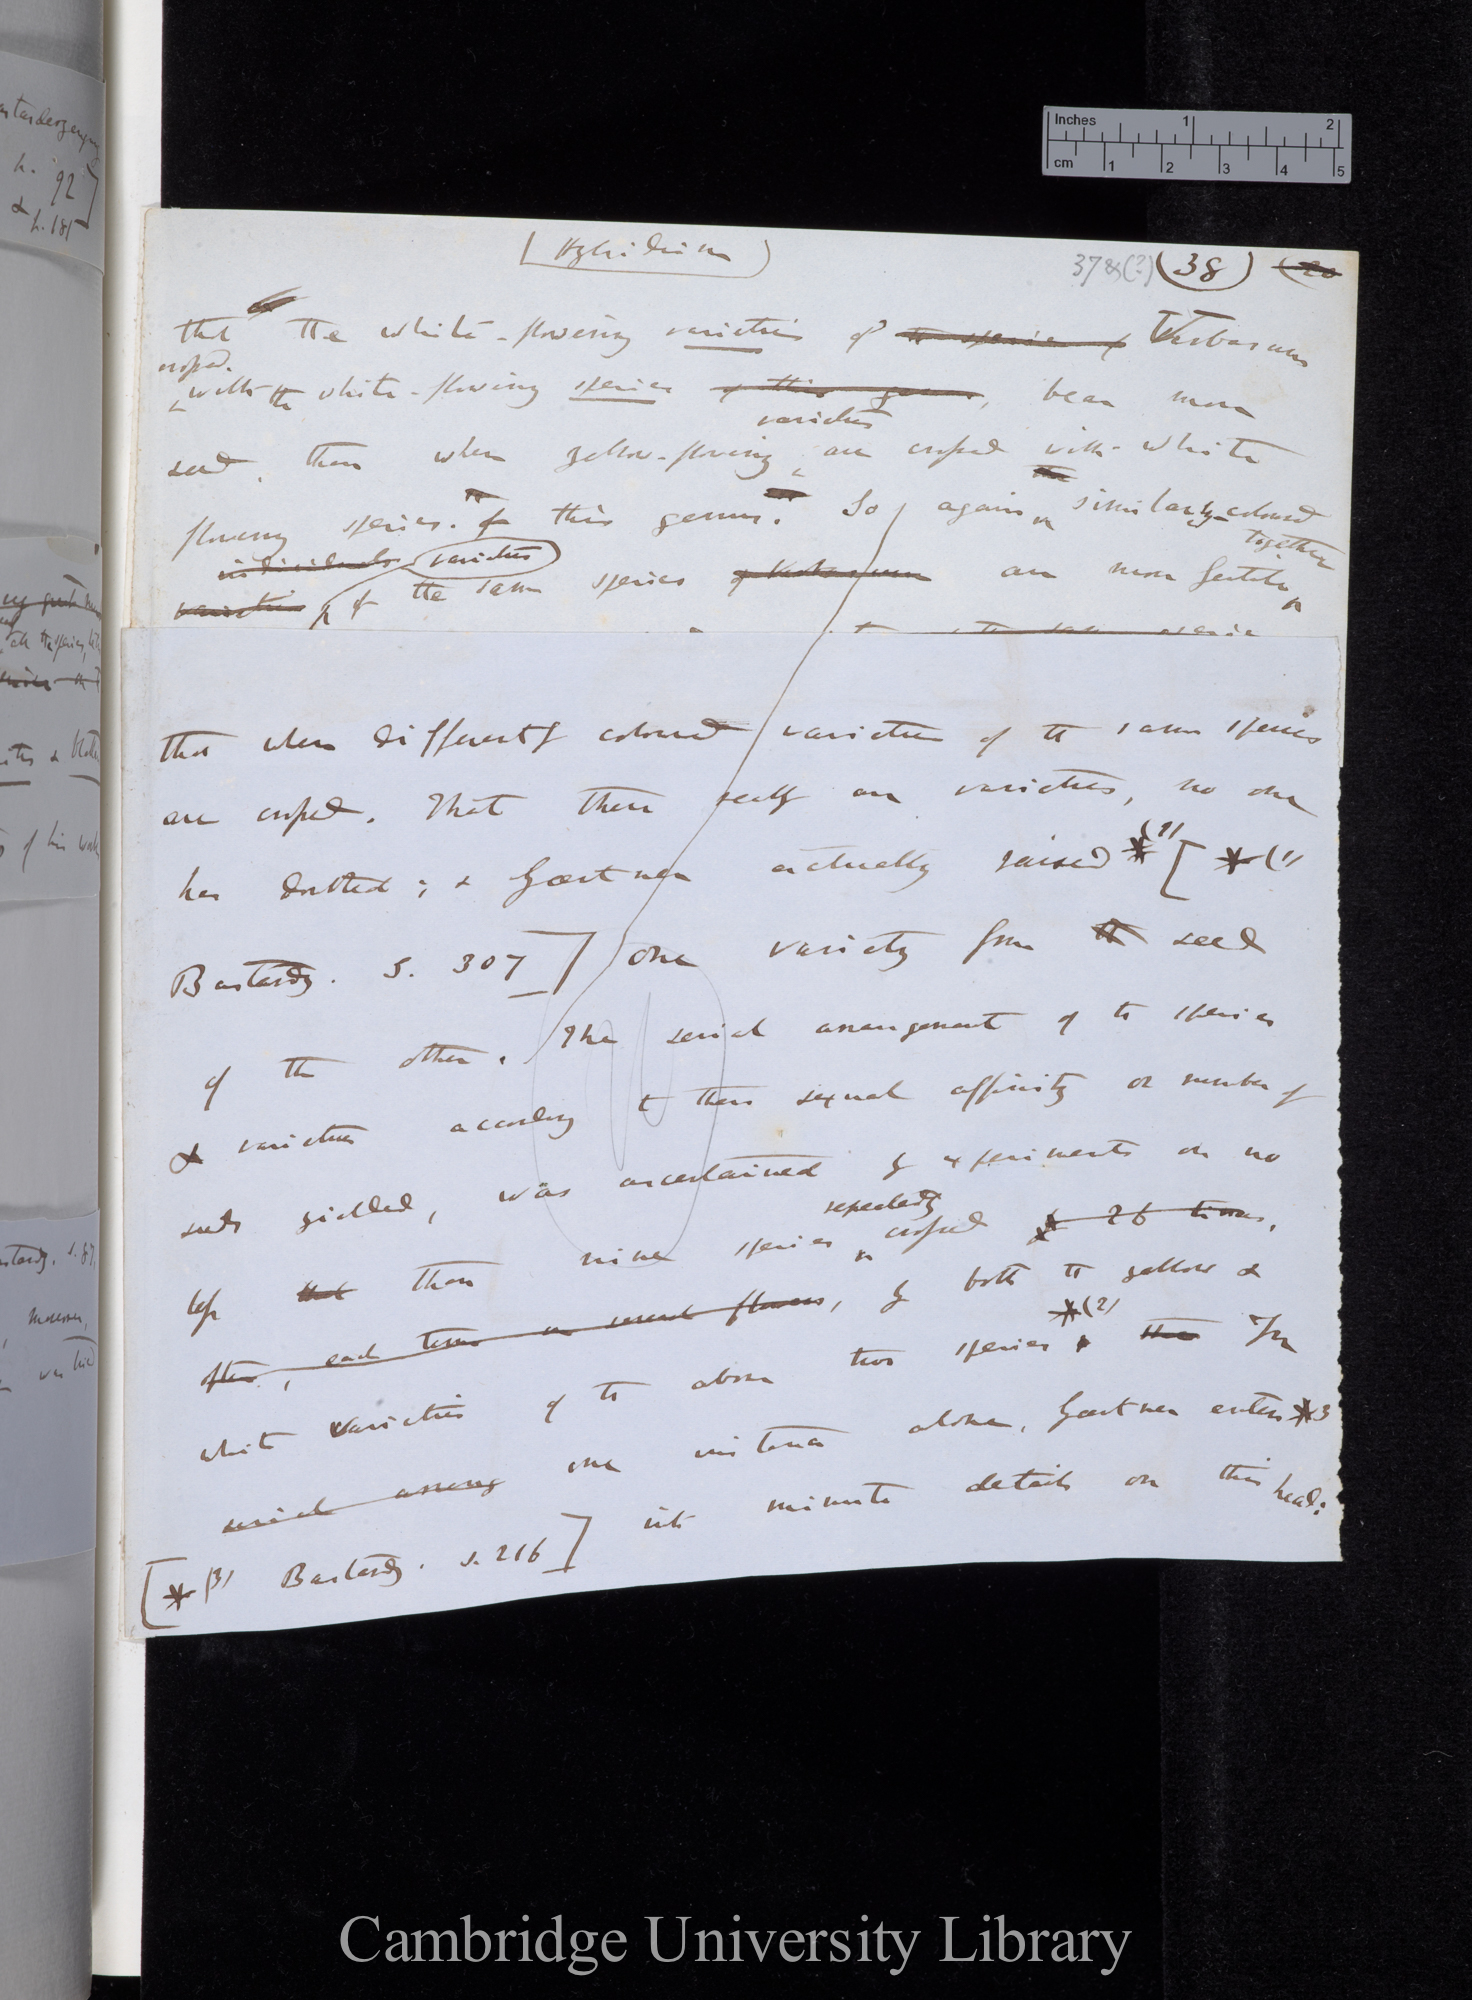 (Hybridism)
37 & (?) (38) (20
that the white-flowering varieties of the species of Verbascum
crossed
with the white-flowering species of this genus, bear more
varieties
seed, than when yellow-flowering are crossed with white
flowering species of this genus. So again similarly-coloured
together
individuals varieties
varieties of the same species of Verbascum are more fertile
that when differently coloured varieties of the same species
are crossed. That these really are varieties, no one
has doubted; & Gærtner actually raised *(1) [*(1)
Bastardz. S. 307] one variety from the seed
of the other. The serial arrangement of the species
& varieties according to their sexual affinity or number of
seeds yielded, was ascertained by experiments on no
repeatedly
less that than nine species crossed 26 times,
often, each time on several flowers, by both the yellow &
white varieties of the above two species *(2) In
serial among one instance alone, Gærtner enters *3
[*(3) Bastardz. S. 216] into minute details on this head:
Bastarderzeugung
p. 92
& p. 181]
of his work
Bastardz. S. 87,
moreover,
Inches 1 2
cm 1 2 3 4 5
Cambridge University Library